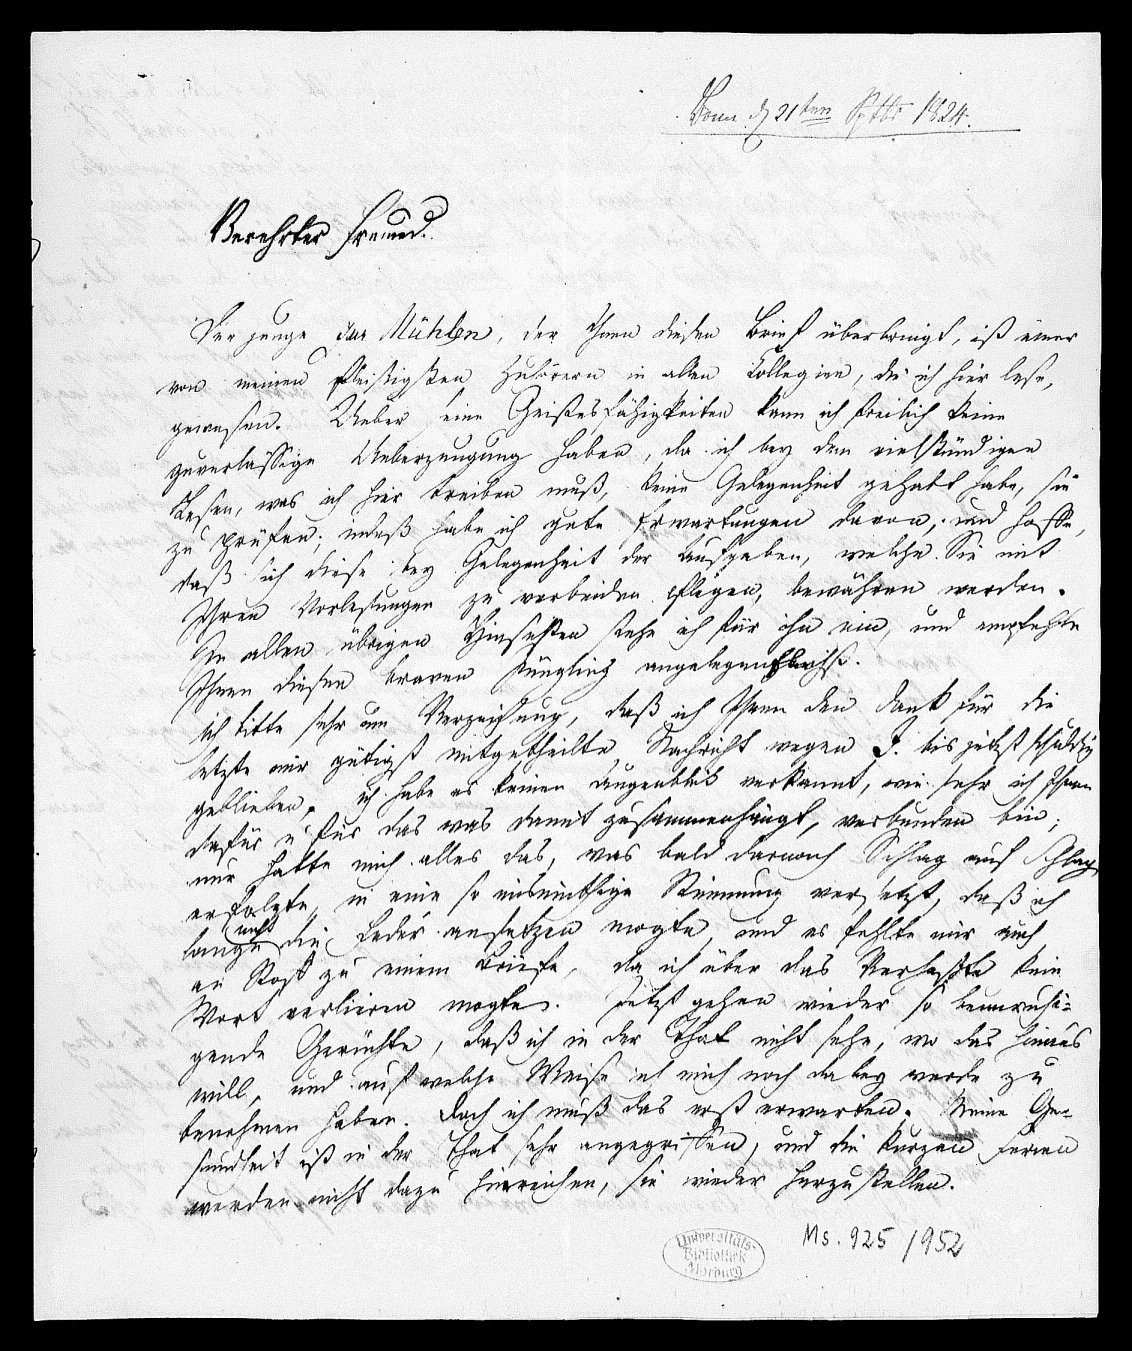 Bonn d 21ten Sptbr 1824.
Verehrter Freund.
Der junge aus Mühlen, der Ihnen diesen Brief überbringt, ist einer
von meinen fleißigsten Zuhörern in allen Collegien, die ich hier lese,
gewesen. Ueber seine Geistesfähigkeiten kann ich freilich keine
zuverlässige Ueberzeugung haben, da ich bey dem vielstündigen
Lesen, was ich hier treiben muß, keine Gelegenheit gehabt habe, sie
zu prüfen; indeß habe ich gute Erwartungen davon, und hoffe,
daß sich diese bey Gelegenheit der Aufgaben, welche Sie mit
Ihren Vorlesungen zu verbinden pflegen, bewähren werden.
In allen übrigen Hinsichten stehe ich für ihn ein, und empfehle
Ihnen diesen braven Jüngling angelegentlichst.
Ich bitte sehr um Verzeihung, daß ich Ihnen den Dank für die
letzte mir gütigst mitgetheilte Nachricht wegen J. bis jetzt schuldig
geblieben. Ich habe es keinen Augenblick verkannt, wie sehr ich Ihnen
dafür u für das was damit zusammenhängt, verbunden bin;
nur hatte mich alles das, was bald darnach Schlag auf Schlag
erfolgte, in eine so mismüthige Stimmung versetzt, daß ich
lange nicht die Feder ansetzen mogte, und es fehlte mir auch
an Stoff zu einem Briefe, da ich über das Verhaßte kein
Wort verlieren mogte. Jetzt gehen wieder so beunruhi-
gende Gerüchte, daß ich in der That nicht sehe, wo das hinaus
will, und auf welche Weise ich mich noch dabey werde zu
benehmen haben. Doch ich muß das erst erwarten. Meine Ge-
sundheit ist in der That sehr angegriffen, und die kurzen Ferien
werden nicht dazu hinreichen, sie wieder herzustellen.
Universitäts-
Bibliothek
Marburg
Ms. 925/952